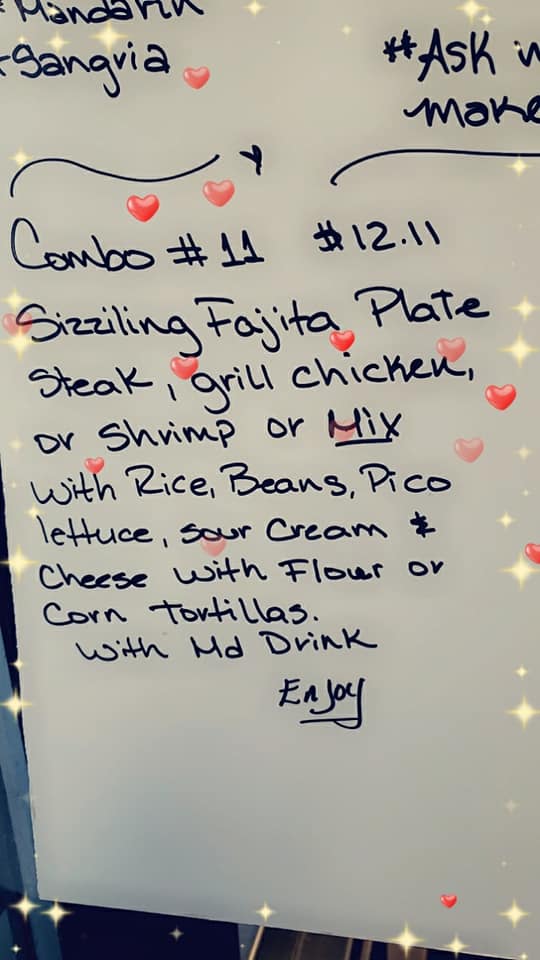 *Mandarin
-Sangria
**Ask
make
Combo # 11 $12.11
Sizziling Fajita Plate
Steak, grill chicken,
or Shrimp or Mix
with Rice, Beans, Pico
lettuce, sour Cream &
Cheese with Flour or
Corn Tortillas.
with Md Drink
Enjoy